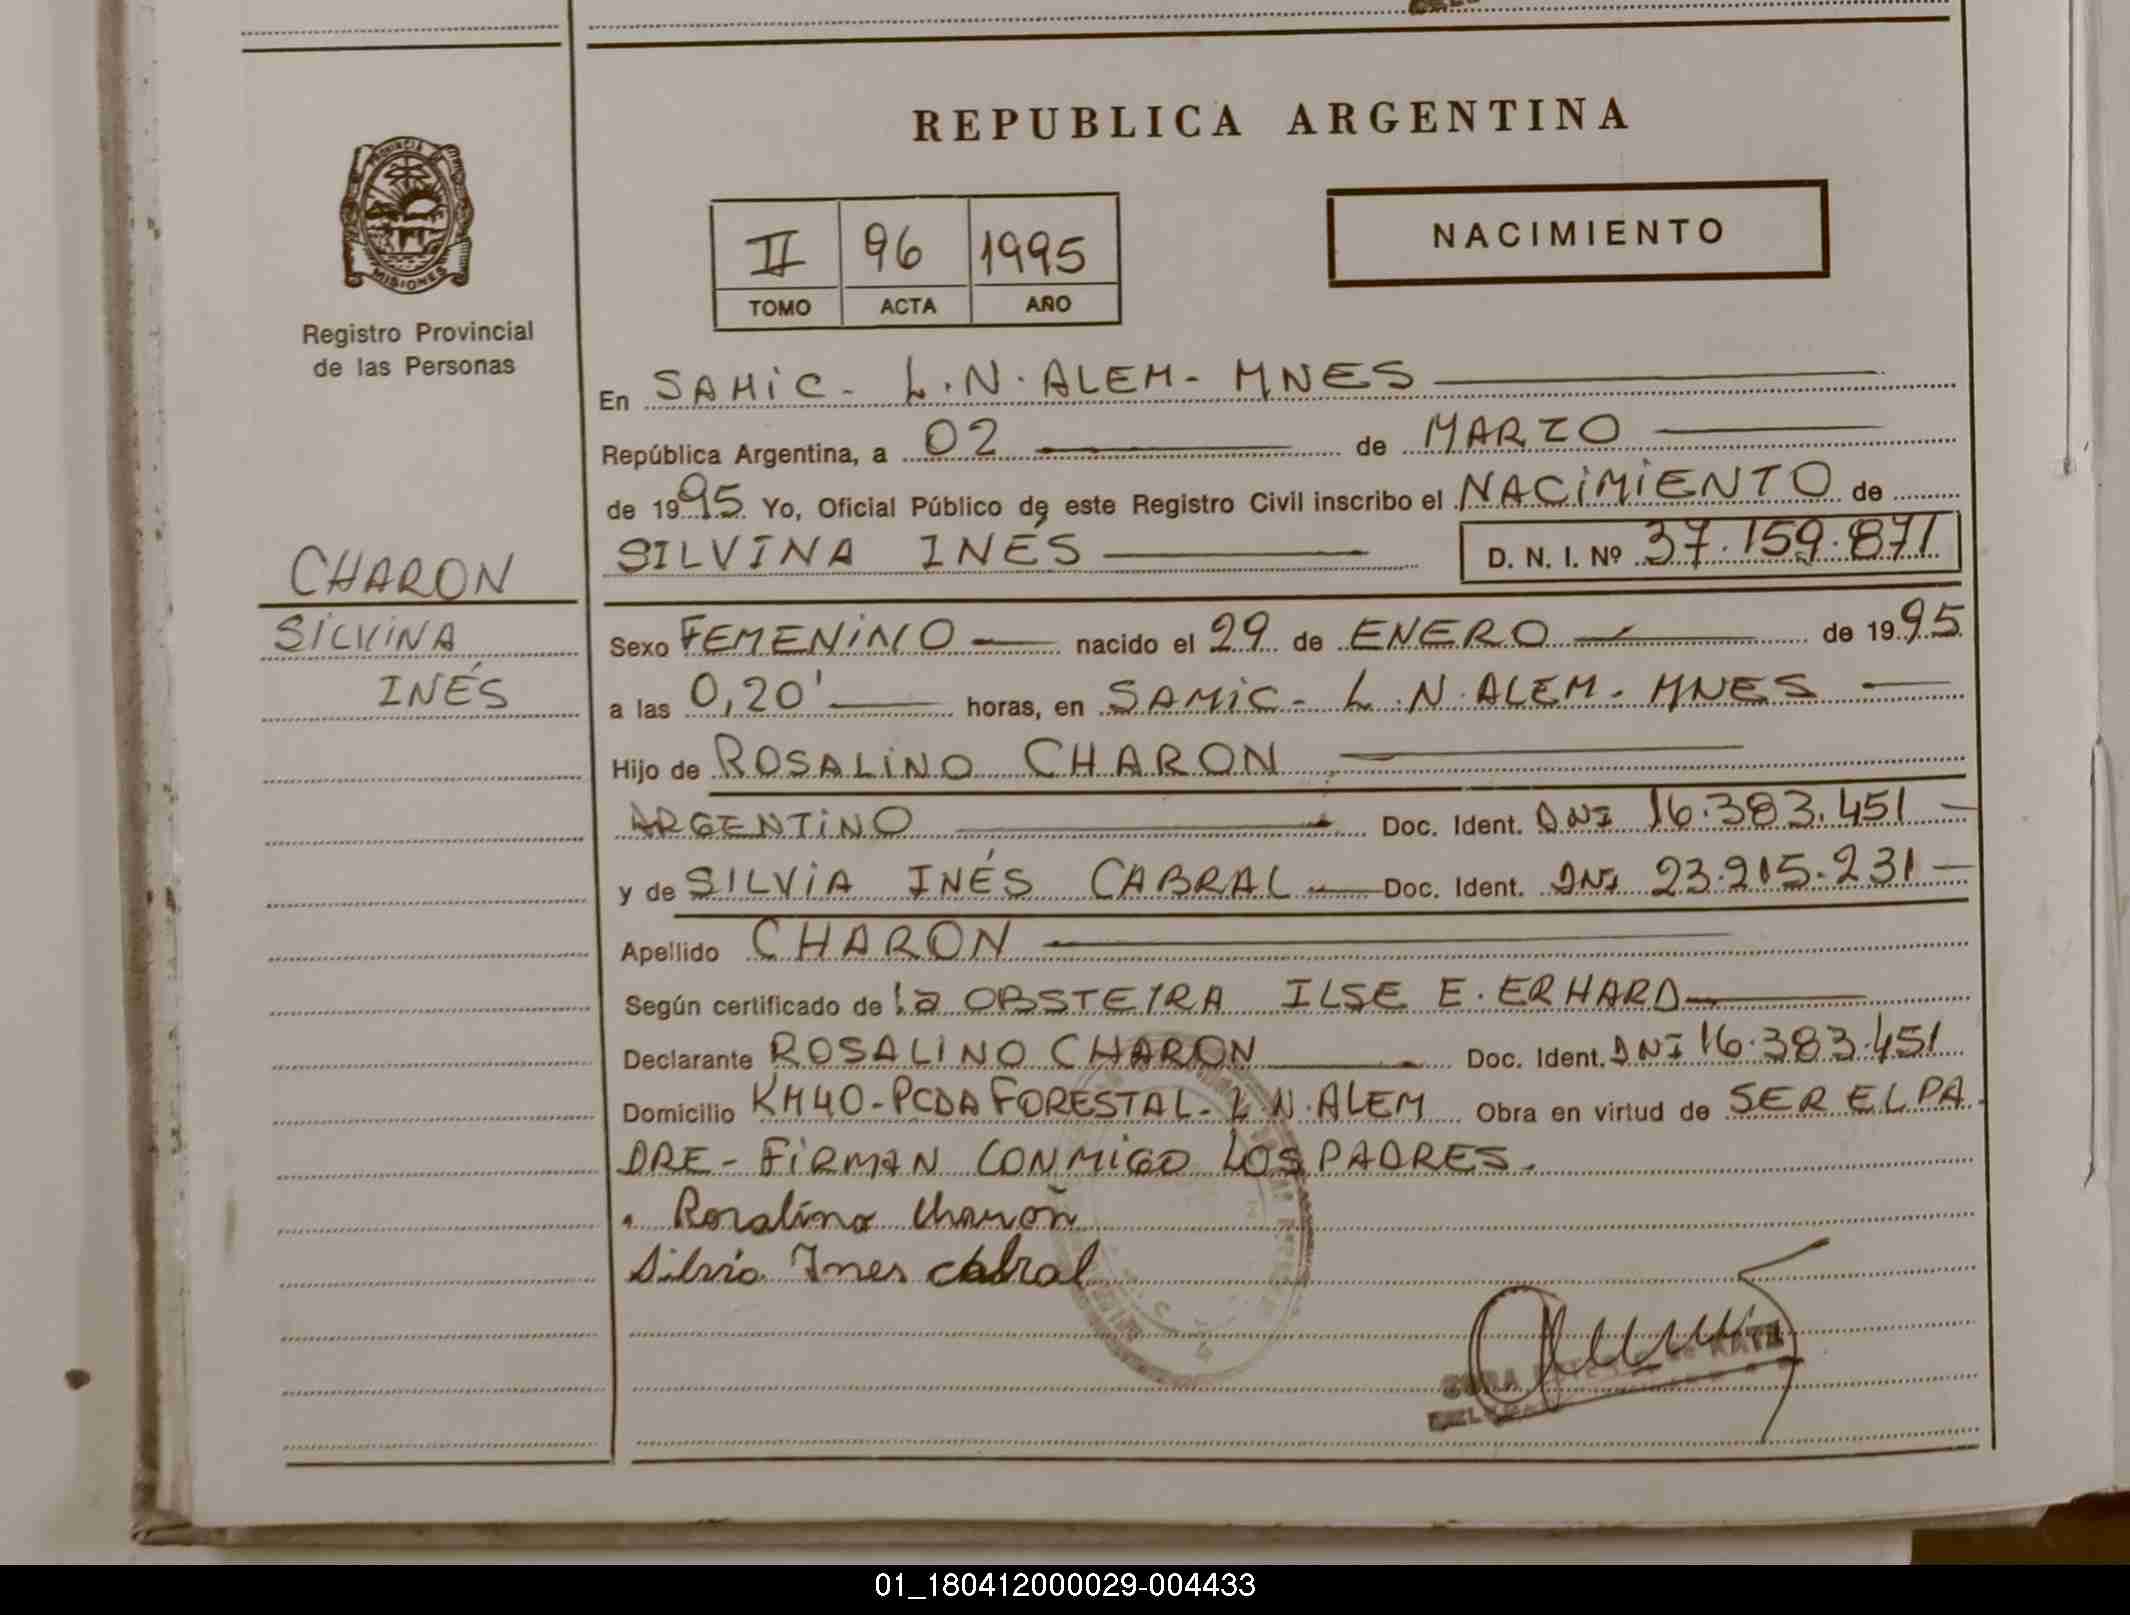 REPUBLICA ARGENTINA
PROVINCIA DE
MISIONES
Registro Provincial
de las Personas
II 96 1995
TOMO ACTA AÑO
NACIMIENTO
En SAMIC - L.N. ALEM - MNES
República Argentina, a 02 de MARZO
de 1995 Yo, Oficial Público de este Registro Civil inscribo el NACIMIENTO de
SILVINA INÉS D. N. I. Nº 37.159.871
CHARON
SILVINA
INÉS
Sexo FEMENINO nacido el 29 de ENERO de 1995
a las 0,20' horas, en SAMIC - L.N. ALEM - MNES
Hijo de ROSALINO CHARON
ARGENTINO Doc. Ident. DNI 16.383.451
y de SILVIA INÉS CABRAL Doc. Ident. DNI 23.915.231
Apellido CHARON
Según certificado de la OBSTETRA ILSE E. ERHARD
Declarante ROSALINO CHARON Doc. Ident. DNI 16.383.451
Domicilio KM40 - PCDA FORESTAL - L.N. ALEM Obra en virtud de SER EL PA
DRE - FIRMAN CONMIGO LOS PADRES.
Rosalino Charon
Silvia Ines cabral
01_180412000029-004433